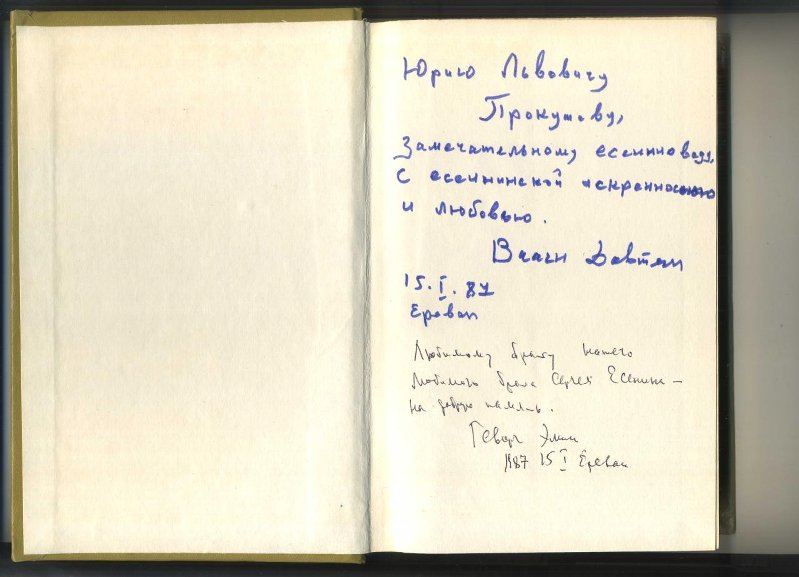 Юрию Львовичу
Прокушеву,
Замечательному есениноведу,
С есенинской искренностью
и любовью.
Ваагн Давтян
15.I.87
Ереван
Любимому брату нашего
любимого брата Сергея Есенина –
на добрую память.
Геворг Эмин
1987 15 I Ереван